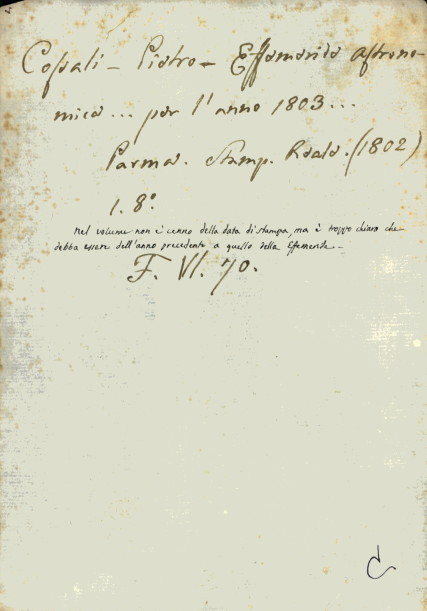 Cossali - Pietro - Effemeride astrono-
mica... per l'anno 1803...
Parma. Stamp. Reale. (1802)
1. 8°.
Nel volume non è cenno della data di stampa, ma è troppo chiaro che
debba essere dell'anno precedente a quello della Effemeride -
F. VI. 70.
C